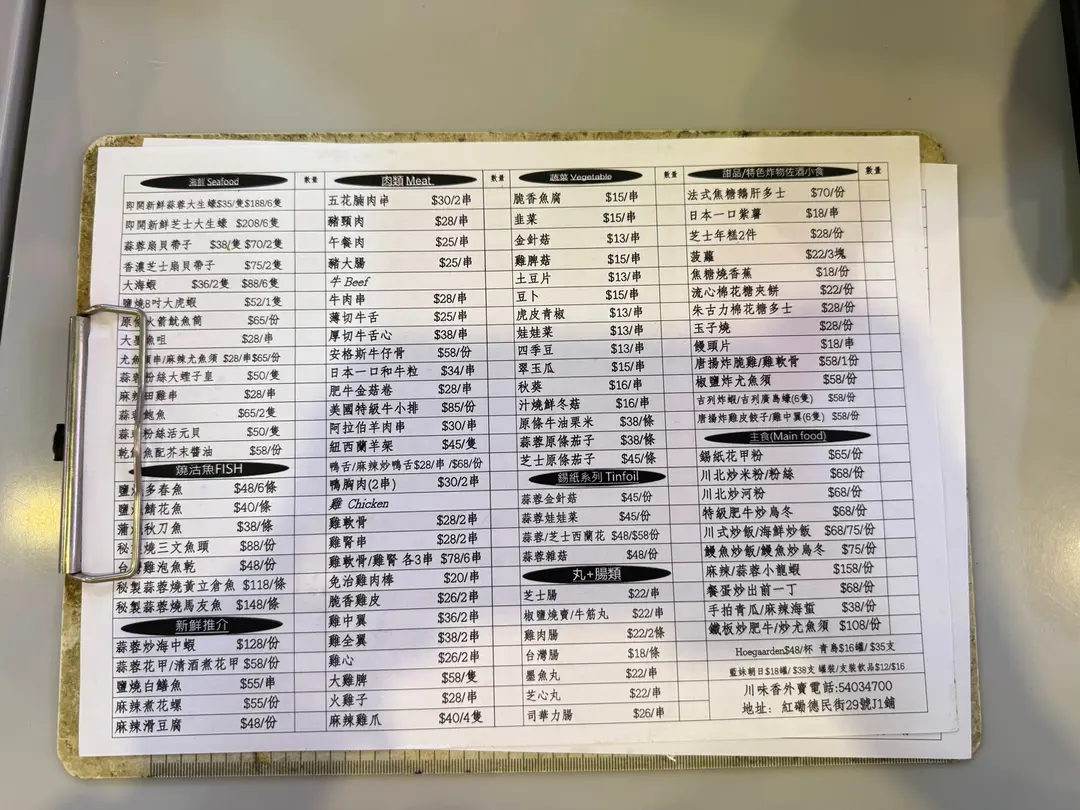 海鮮 Seafood 數量
即開新鮮蒜蓉大生蠔$35/隻$188/6隻
即開新鮮芝士大生蠔 $208/6隻
蒜蓉扇貝帶子 $38/隻 $70/2隻
香濃芝士扇貝帶子 $75/2隻
大海蝦 $36/2隻 $88/6隻
鹽燒8吋大虎蝦 $52/1隻
原條火箭魷魚筒 $65/份
大墨魚咀 $28/串
尤魚須串/麻辣尤魚須 $28/串$65/份
蒜蓉粉絲大蟶子皇 $50/隻
麻辣田雞串 $28/串
蒜蓉鮑魚 $65/2隻
蒜蓉粉絲活元貝 $50/隻
魚配芥末醬油 $58/份
燒活魚FISH
鹽燒多春魚 $48/6條
鹽燒鯖花魚 $40/條
蒲燒秋刀魚 $38/條
秘製燒三文魚頭 $88/份
台灣雞泡魚乾 $48/份
秘製蒜蓉燒黃立倉魚 $118/條
秘製蒜蓉燒馬友魚 $148/條
新鮮推介
蒜蓉炒海中蝦 $128/份
蒜蓉花甲/清酒煮花甲 $58/份
鹽燒白鱔魚 $55/串
麻辣煮花螺 $55/份
麻辣滑豆腐 $48/份
肉類 Meat 數量
五花腩肉串 $30/2串
豬頸肉 $28/串
午餐肉 $25/串
豬大腸 $25/串
牛 Beef
牛肉串 $28/串
薄切牛舌 $25/串
厚切牛舌心 $38/串
安格斯牛仔骨 $58/份
日本一口和牛粒 $34/串
肥牛金菇卷 $28/串
美國特級牛小排 $85/份
阿拉伯羊肉串 $30/串
紐西蘭羊架 $45/隻
鴨舌/麻辣炒鴨舌$28/串 /$68/份
鴨胸肉(2串) $30/2串
雞 Chicken
雞軟骨 $28/2串
雞腎串 $28/2串
雞軟骨/雞腎 各3串 $78/6串
免治雞肉棒 $20/串
脆香雞皮 $26/2串
雞中翼 $36/2串
雞全翼 $38/2串
雞心 $26/2串
大雞髀 $58/隻
火雞子 $28/串
麻辣雞爪 $40/4隻
蔬菜 Vegetable 數量
脆香魚腐 $15/串
韭菜 $15/串
金針菇 $13/串
雞脾菇 $15/串
土豆片 $13/串
豆卜 $15/串
虎皮青椒 $13/串
娃娃菜 $13/串
四季豆 $13/串
翠玉瓜 $15/串
秋葵 $16/串
汁燒鮮冬菇 $16/串
原條牛油栗米 $38/條
蒜蓉原條茄子 $38/條
芝士原條茄子 $45/條
錫紙系列 Tinfoil
蒜蓉金針菇 $45/份
蒜蓉娃娃菜 $45/份
蒜蓉/芝士西蘭花 $48/$58份
蒜蓉雜菇 $48/份
丸+腸類
芝士腸 $22/串
椒鹽燒賣/牛筋丸 $22/串
雞肉腸 $22/2條
台灣腸 $18/條
墨魚丸 $22/串
芝心丸 $22/串
司華力腸 $26/串
甜品/特色炸物佐酒小食 數量
法式焦糖鵝肝多士 $70/份
日本一口紫薯 $18/串
芝士年糕2件 $28/份
菠蘿 $22/3塊
焦糖燒香蕉 $18/份
流心棉花糖夾餅 $22/份
朱古力棉花糖多士 $28/份
玉子燒 $28/份
饅頭片 $18/串
唐揚炸脆雞/雞軟骨 $58/1份
椒鹽炸尤魚須 $58/份
吉列炸蝦/吉列廣島蠔(6隻) $58/份
唐揚炸雞皮餃子/雞中翼(6隻) $58/份
主食(Main food)
錫紙花甲粉 $65/份
川北炒米粉/粉絲 $68/份
川北炒河粉 $68/份
特級肥牛炒烏冬 $68/份
川式炒飯/海鮮炒飯 $68/75/份
鰻魚炒飯/鰻魚炒烏冬 $75/份
麻辣/蒜蓉小龍蝦 $158/份
餐蛋炒出前一丁 $68/份
手拍青瓜/麻辣海蜇 $38/份
鐵板炒肥牛/炒尤魚須 $108/份
Hoegaarden$48/杯 青島$16罐/ $35支
藍妹朝日$18罐/ $38支 罐裝/支裝飲品$12/$16
川味香外賣電話:54034700
地址: 紅磡德民街29號J1鋪